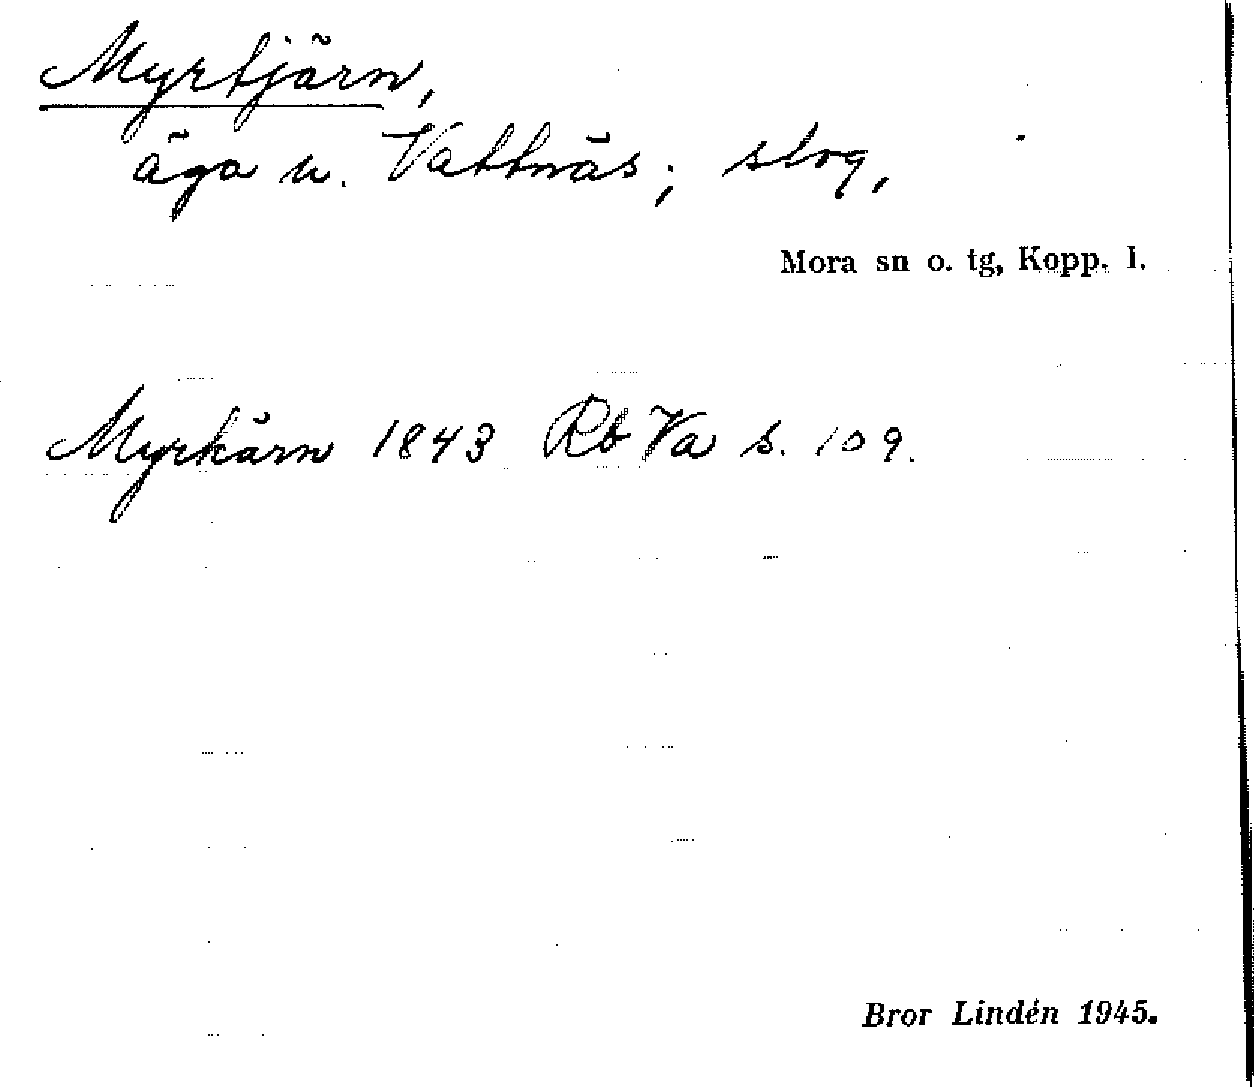 Myrtjärn,
äga u. Vattnäs; slog,
Mora sn o. tg, Kopp. l.
Myrkärn 1843 Rb Va s. 109.
Bror Lindén 1945.